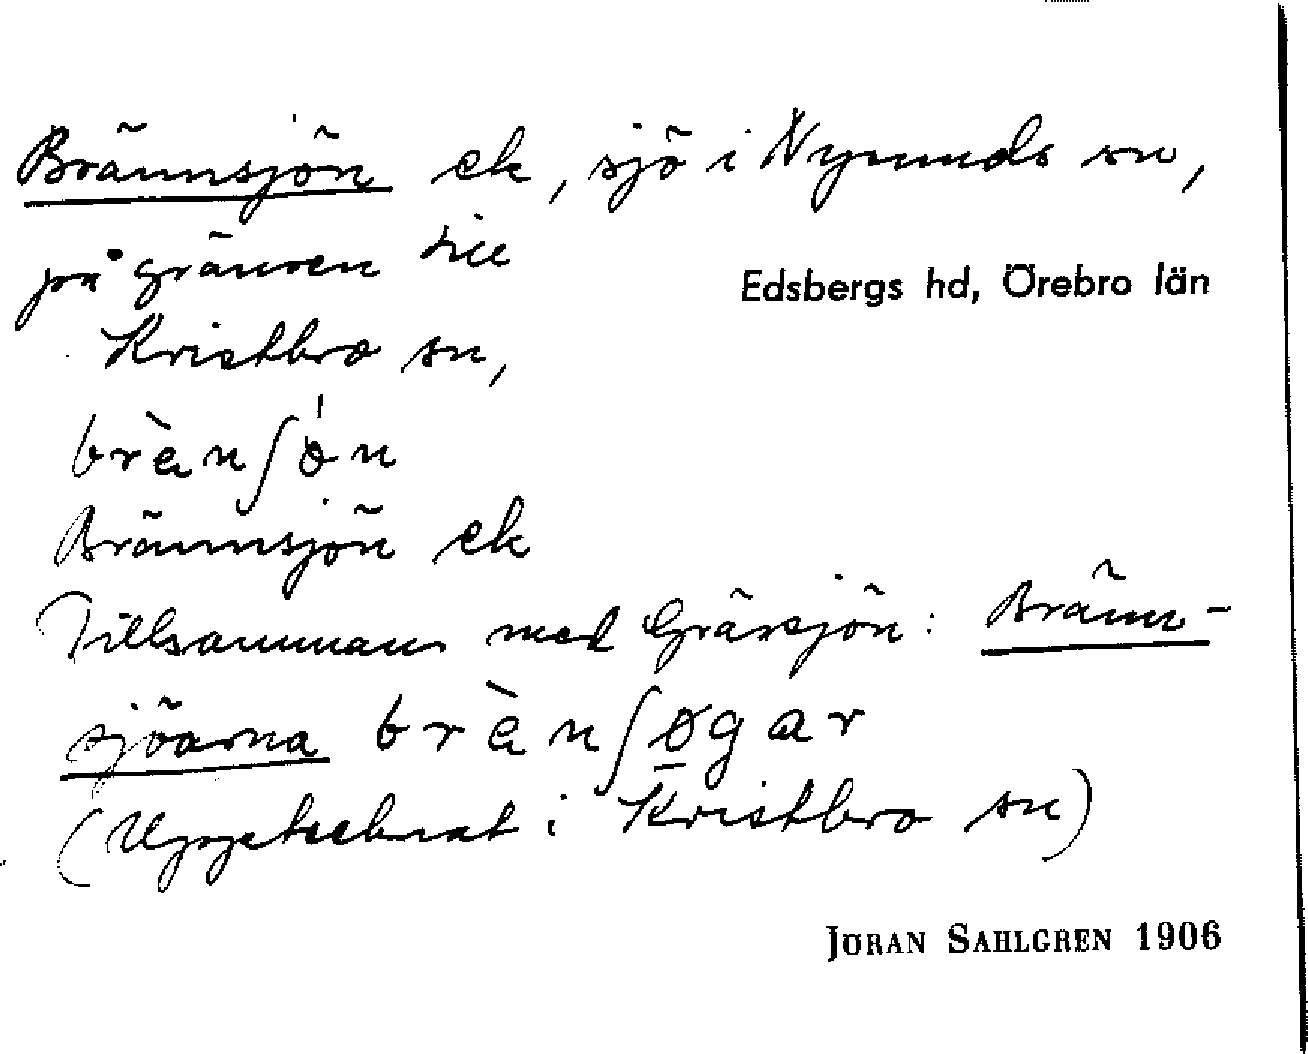 Brännsjön ek, sjö i Nysunds sn,
på gränsen till
Edsbergs hd, Örebro län
Kristbro sn,
brä̀nʃǿn
Brännsjön ek
Tillsammans med Gräsjön: Bränn-
sjöarna brä̀nʃøgar
(Upptecknat i Kristbro sn)
JÖRAN SAHLGREN 1906